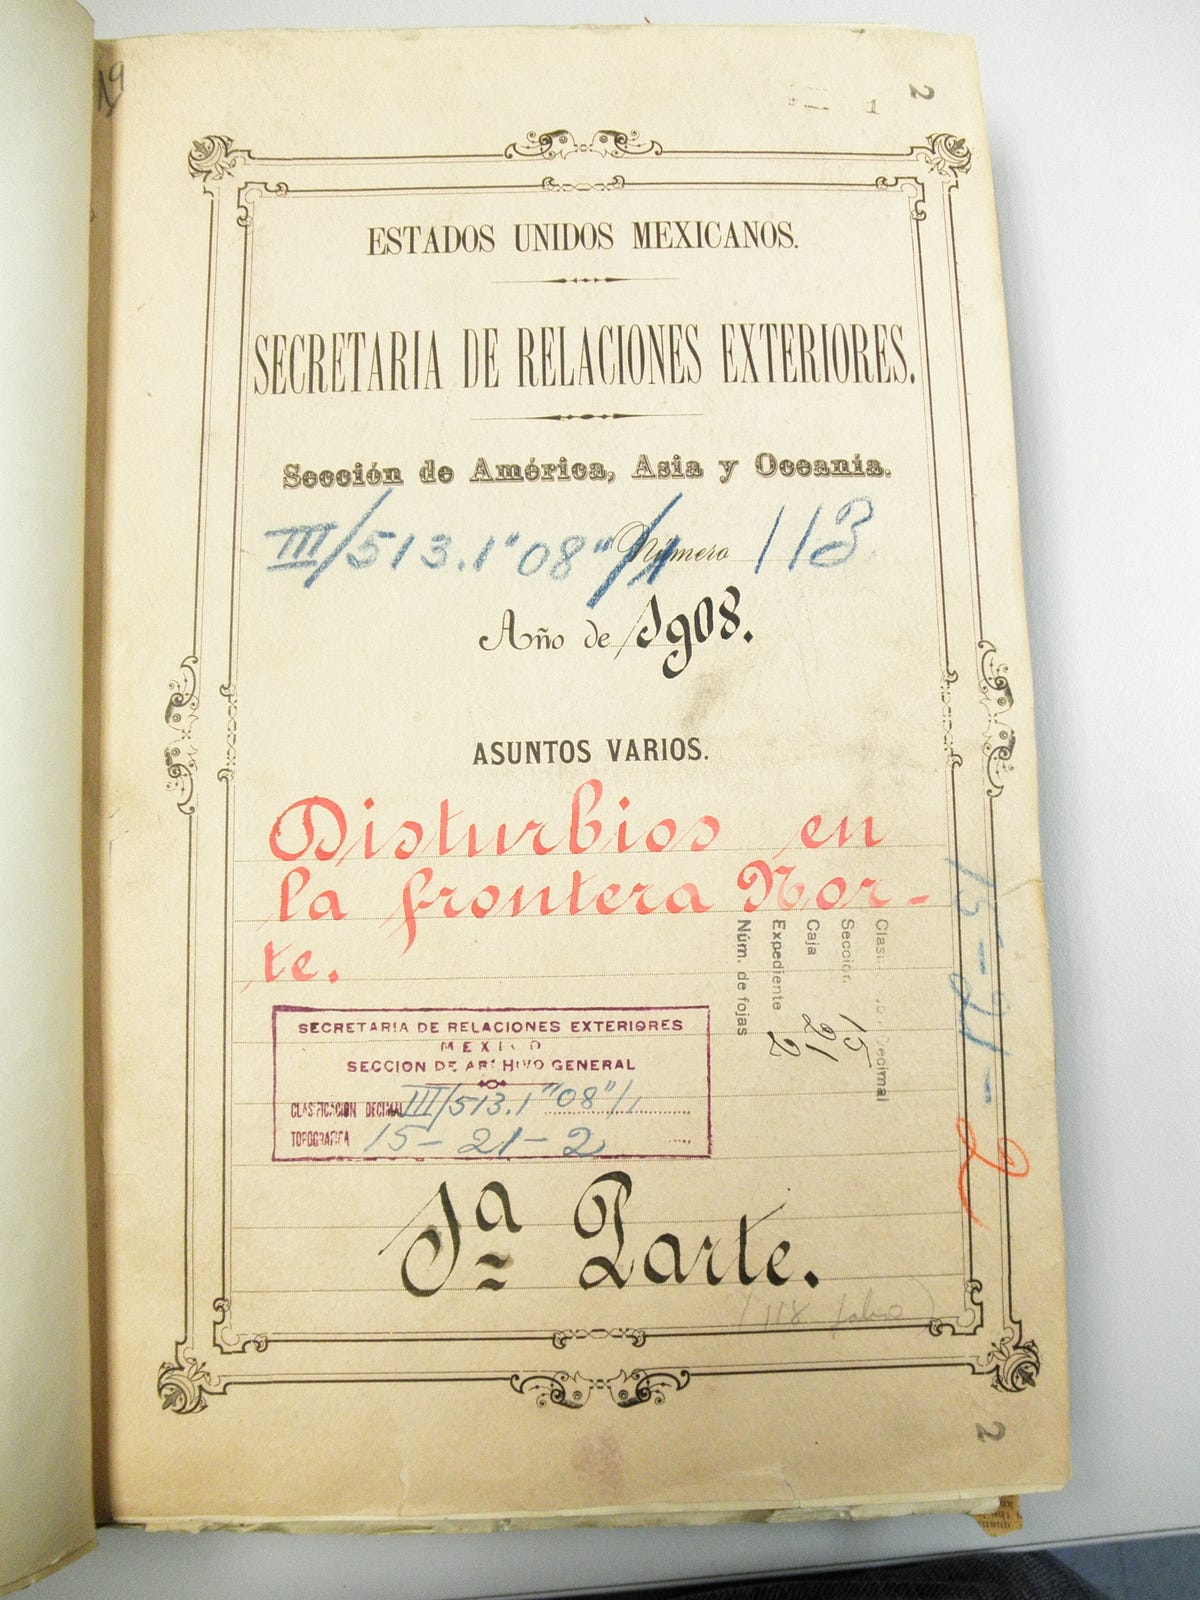 19
1
2
ESTADOS UNIDOS MEXICANOS.
SECRETARIA DE RELACIONES EXTERIORES.
Sección de América, Asia y Oceanía.
III/513.1"08"/1 Número 113
Año de 1908.
ASUNTOS VARIOS.
Disturbios en
la frontera Nor-
te.
Decimal
Sección 15
Caja 21
Expediente 2
Núm. de fojas
15-21-2
SECRETARIA DE RELACIONES EXTERIORES
MEXICO
SECCION DE ARCHIVO GENERAL
CLASIFICACION DECIMAL III/513.1"08"/1
TOPOGRAFICA 15-21-2
1a Parte.
(118
2